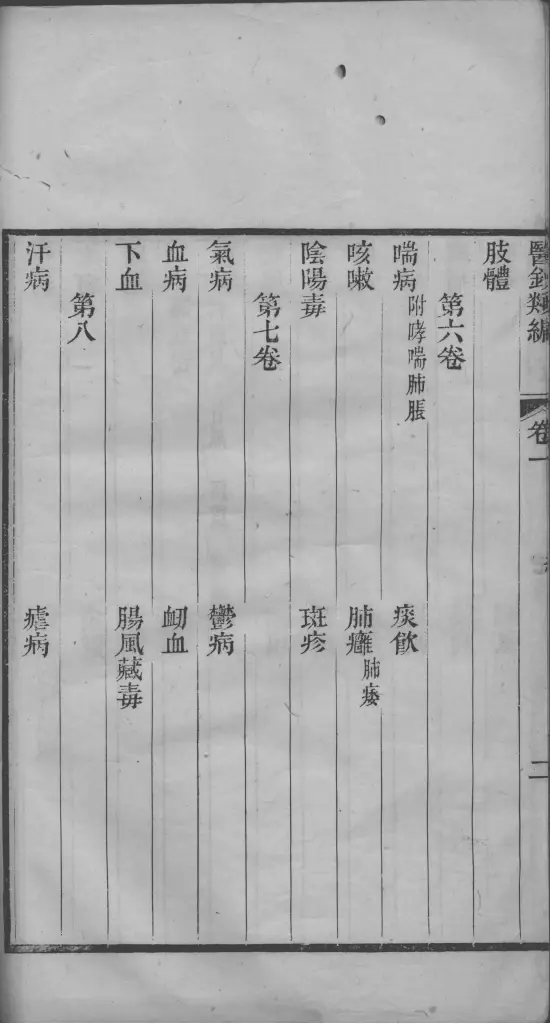 醫鈔類編 卷一 二
肢體
第六卷
喘病 附哮喘肺脹 痰飲
咳嗽 肺癰 肺痿
陰陽毒 斑疹
第七卷
氣病 鬱病
血病 衂血
下血 腸風藏毒
第八
汗病 瘧病